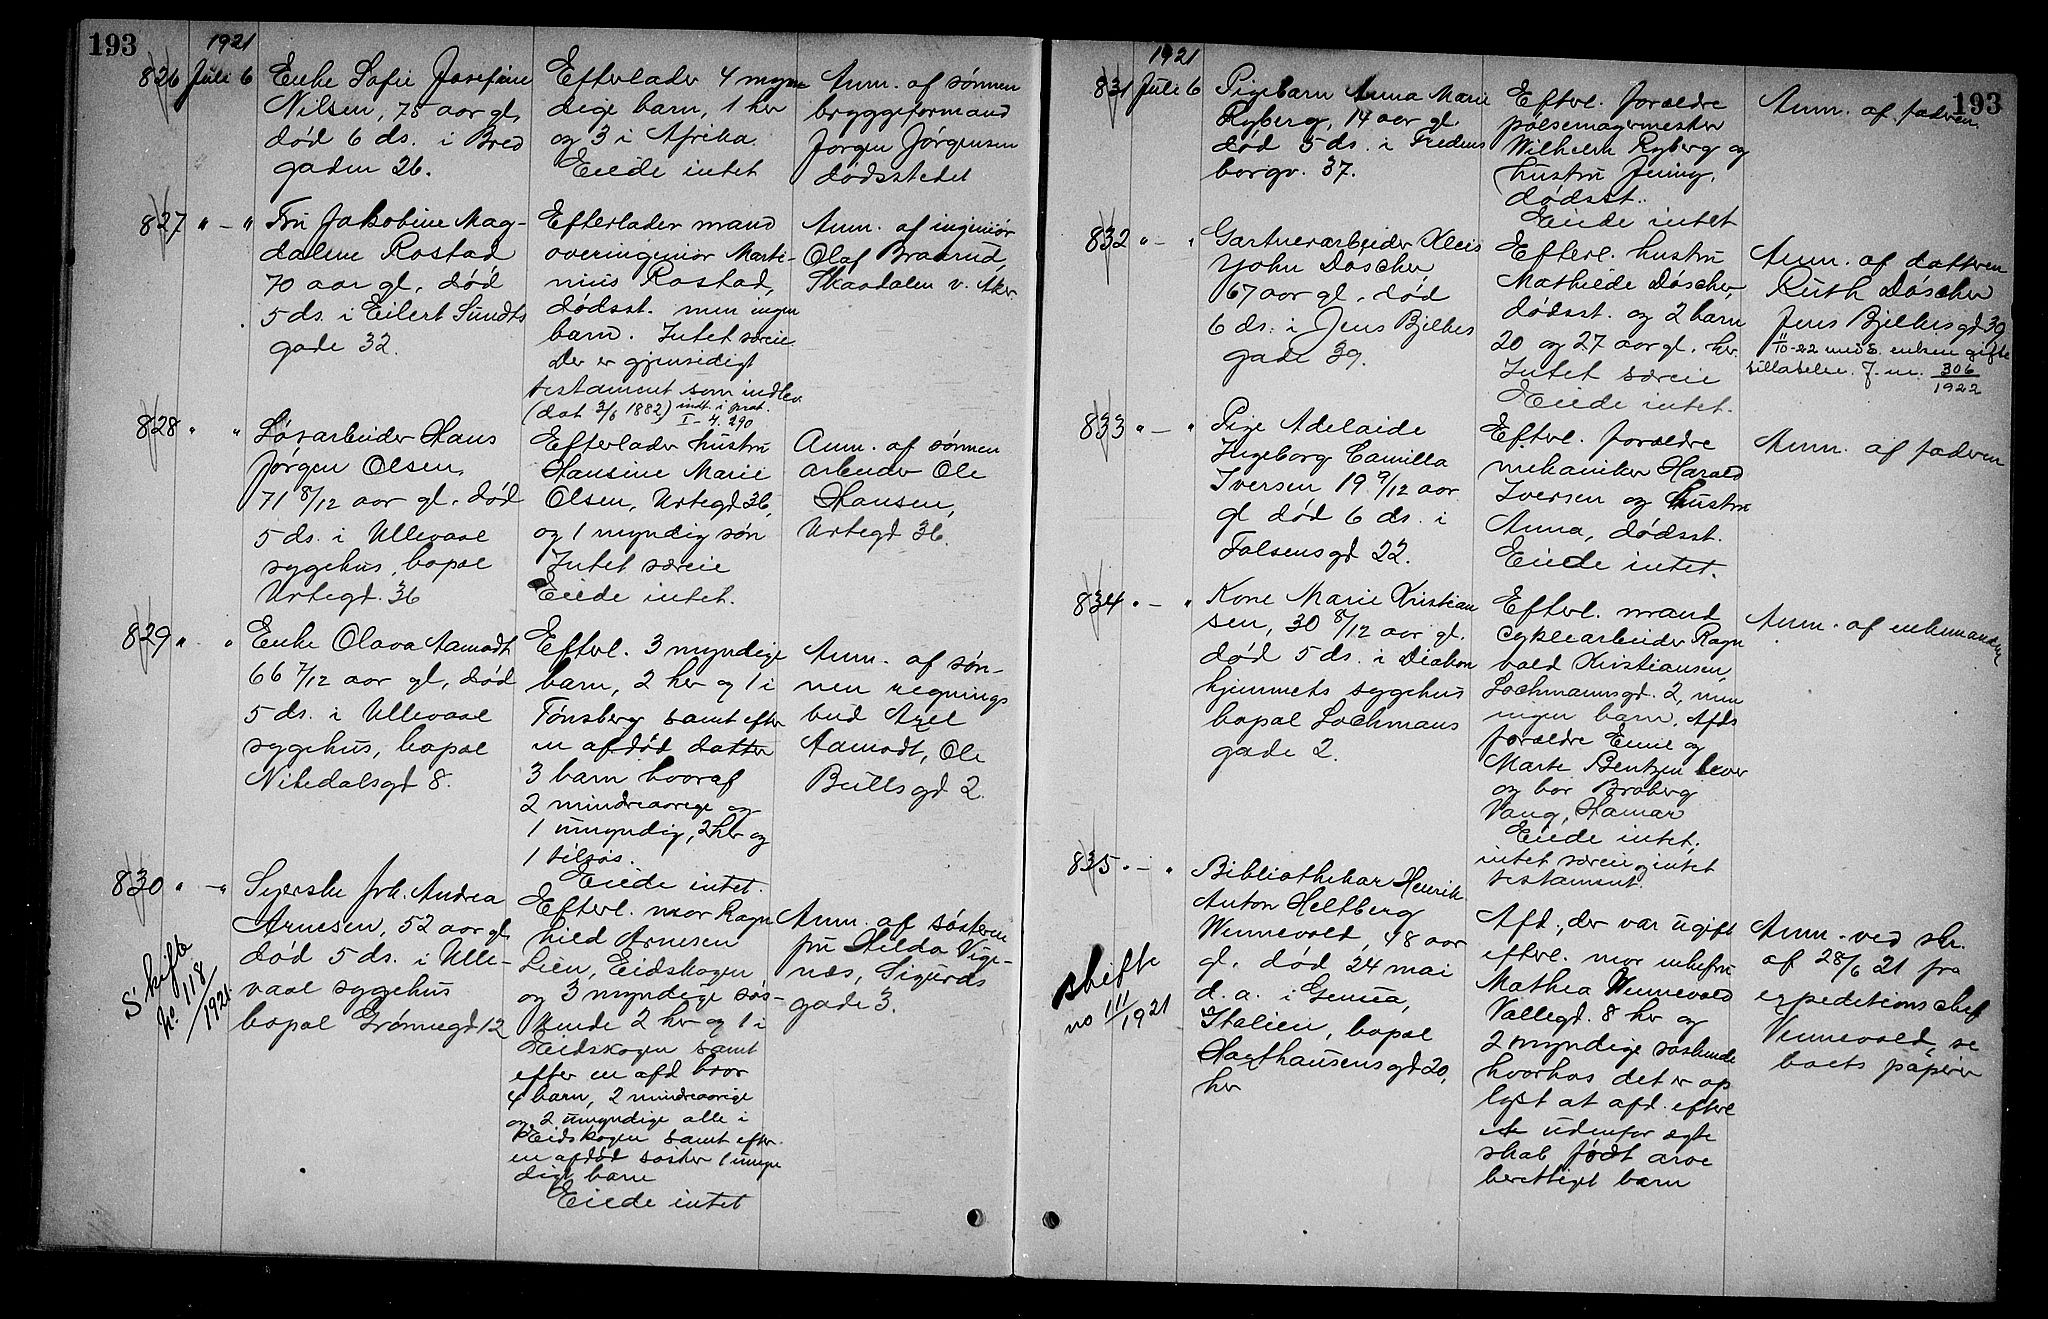 193
1921
826 Juli 6
Enke Sofie Josefine
Nilsen, 75 aar gl,
død 6 ds. i Bred
gaden 26.
Efterlader 4 myn
dige barn, 1 her
og 3 i Afrika.
Eiede intet
Anm. af sønnen
bryggeformand
Jørgen Jørgensen
dødsstedet
827 " — "
Fru Jakobine Mag-
dalene Rostad
70 aar gl, død
5 ds. i Eilert Sundts
gade 32.
Efterlader mand
overingeniør Marti-
nius Rostad,
dødsst. men ingen
barn. Intet særeie
Der er gjensidigt
testament som indlev
(dat 3/6 1882) indt. i prot.
I - 4. 290
Anm. af ingeniør
Olaf Braarud,
Skaadalen v. Aker.
828 " "
Løsarbeider Hans
Jørgen Olsen,
71 8/12 aar gl, død
5 ds. i Ullevaal
sygehus, bopæl
Urtegd. 36
Efterlader hustru
Hansine Marie
Olsen, Urtegd 36,
og 1 myndig søn
Intet særeie
Eiede intet.
Anm. af sønnen
arbeider Ole
Hansen,
Urtegd 36.
829 " - "
Enke Olava Aamodt
66 7/12 aar gl, død
5 ds. i Ullevaal
sygehus, bopæl
Nitedalsgd 8.
Efterl. 3 myndige
barn, 2 her og 1 i
Tønsberg samt efter
en afdød datter
3 barn hvoraf
2 mindreaarige og
1 umyndig, 2 her og
1 tilsjøs.
Eiede intet.
Anm. af søn-
nen regnings
bud Axel
Aamodt, Ole
Bullsgd 2.
830 " — "
Syerske frk. Andrea
Arnesen, 52 aar gl,
død 5 ds. i Ulle-
vaal sygehus
bopæl Grønnegd 12
Skifte
no. 118/1921
Efterl. mor Ragn
hild Arnesen
Lien, Eidskogen
og 3 myndige søs-
kende 2 her og 1 i
Eidskogen samt
efter en afd bror
4 barn, 2 mindreaarige
og 2 umyndige alle i
Eidskogen samt efter
en afdød søster 1 umyn
digt barn
Eiede intet
Anm. af søsteren
fru Hilda Vige-
næs, Sigurds
gade 3.
193
1921
831 Juli 6
Pigebarn Anna Marie
Ryberg, 14 aar gl
død 5 ds. i Fredens
borgv. 37.
Efterl. forældre
pølsemagermester
Wilhelm Ryberg og
hustru Jenny,
dødsst.
Eiede intet
Anm. af faderen.
832 " — "
Gartnerarbeider Kleis
John Döscher,
67 aar gl, død
6 ds. i Jens Bjelkes
gade 39.
Efterl. hustru
Mathilde Döscher,
dødsst. og 2 barn
20 og 27 aar gl, her.
Intet særeie
Eiede intet.
Anm. af datteren
Ruth Döscher
Jens Bjelkesgd 39
11/10-22 meds. enken gifte
tilladelse. J. nr. 306/1922
833 " — "
Pige Adelaide
Ingeborg Camilla
Iversen 19 9/12 aar
gl død 6 ds. i
Falsensgd 22.
Efterl. forældre
mekaniker Harald
Iversen og hustru
Anna, dødsst.
Eiede intet.
Anm. af faderen
834 " — "
Kone Marie Kristian
sen, 30 8/12 aar gl.
død 5 ds. i Diakon
hjemmets sygehus
bopæl Lochmans
gade 2.
Efterl. mand
cyklearbeider Ragn
vald Kristiansen,
Lochmannsgd. 2, men
ingen barn. Afds
forældre Emil og
Marte Bentzen lever
og bor Broberg
Vang, Hamar
Eiede intet,
intet særeie og intet
testament.
Anm. af enkemanden
835 " — "
Bibliothekar Henrik
Anton Heltberg
Wennevold, 48 aar
gl, død 24 mai
d. a. i Genua,
Italien, bopæl
Haxthausensgd 20,
her
skifte
no 11/1921
Afd., der var ugift
efterl. mor enkefru
Mathea Wennevold
Vallegd. 8 her og
2 myndige søskende
hvorhos det er op
lyst at afd. efterl
et udenfor ægte
skab født arve
berettiget barn
Anm. ved skr.
af 28/6 21 fra
expeditionschef
Vennevold, se
boets papirer